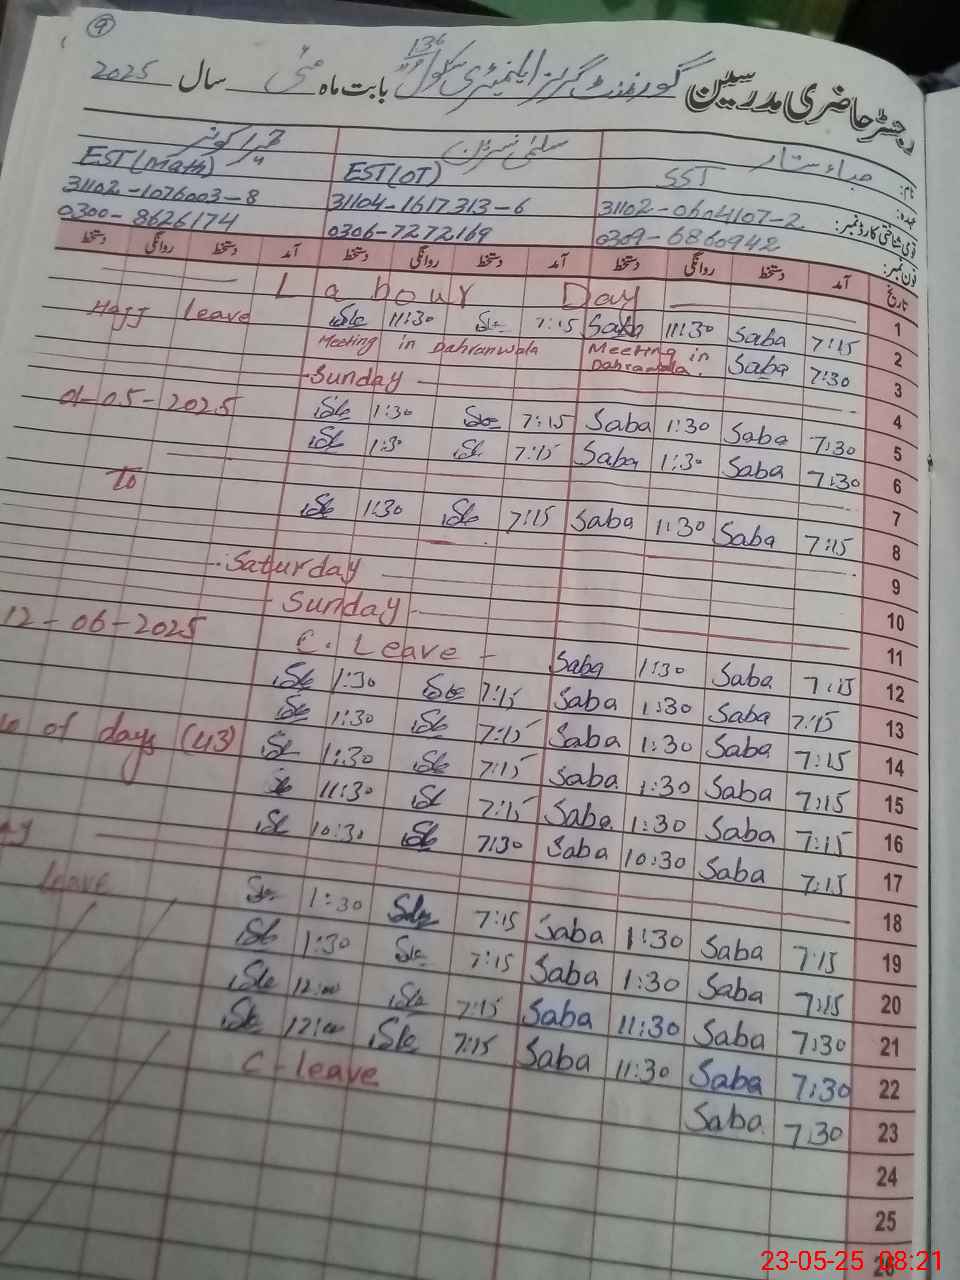 9
رجسٹر حاضری مدرسین گورنمنٹ گرلز ایلیمنٹری سکول 136 بابت ماہ مئی سال 2025
نام: صباء ستار سلمیٰ نسرین
عہدہ: SST EST(OT) EST(Math)
قومی شناختی کارڈ نمبر: 31102-0604107-2 31104-1617313-6 31102-1076003-8
فون نمبر: 0309-6860942 0306-7272169 0300-8626174
تاریخ آمد دستخط روانگی دستخط آمد دستخط روانگی دستخط آمد دستخط روانگی دستخط
1 Labour Day
2 7:15 Saba 11:30 Saba 7:15 11:30 Hajj leave
3 7:30 Saba Meeting in Dahranwala. Meeting in Dahranwala
4 Sunday
5 7:30 Saba 1:30 Saba 7:15 1:30 01-05-2025
6 7:30 Saba 1:30 Saba 7:15 1:30
7 To
8 7:15 Saba 1:30 Saba 7:15 1:30
9
10 Saturday
11 Sunday 12-06-2025
12 7:15 Saba 1:30 Saba C. Leave
13 7:15 Saba 1:30 Saba 7:15 1:30
14 7:15 Saba 1:30 Saba 7:15 1:30 of days (43)
15 7:15 Saba 1:30 Saba 7:15 1:30
16 7:15 Saba 1:30 Saba 7:15 11:30
17 7:15 Saba 10:30 Saba 7:30 10:30
18
19 7:15 Saba 1:30 Saba 7:15 1:30 leave
20 7:15 Saba 1:30 Saba 7:15 1:30
21 7:30 Saba 11:30 Saba 7:15 12:00
22 7:30 Saba 11:30 Saba 7:15 12:00
23 7:30 Saba C-leave
24
25
26
23-05-25 08:21